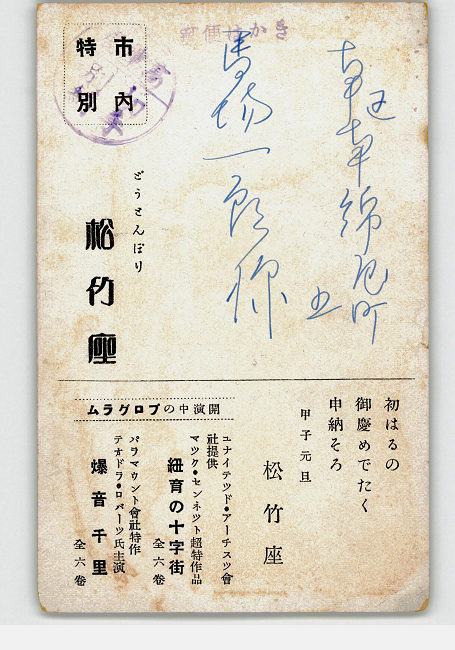 郵便はかき
馬場一郎様
市内
特別
どうとんぼり
松竹座
初はるの
御慶めでたく
申納そろ
甲子元旦
松竹座
開演中のプログラム
ユナイテツド・アーチスツ會
社提供
マツク・センネツト超特作品
紐育の十字街
全六卷
パラマウント會社特作
テオドラ・ロバーツ氏主演
爆音千里
全六卷